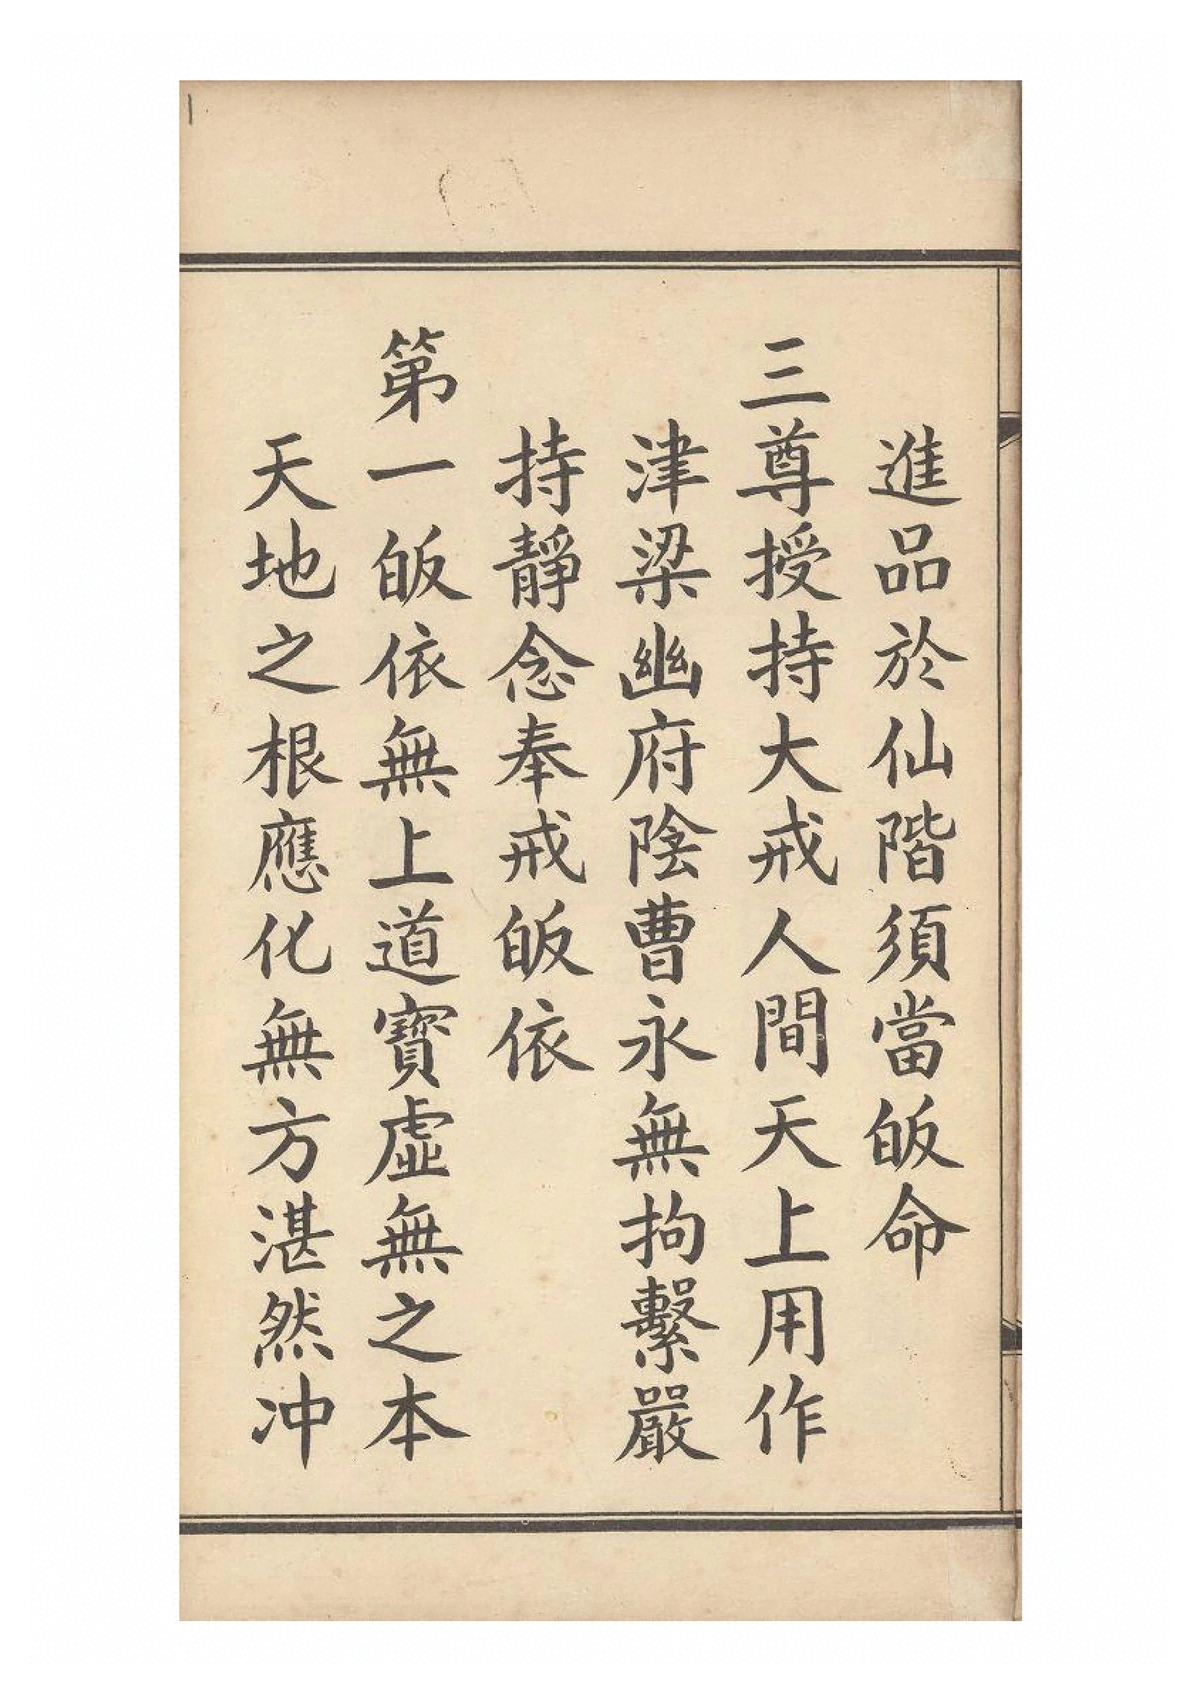 進品於仙階須當皈命
三尊授持大戒人間天上用作
津梁幽府陰曹永無拘繫嚴
持靜念奉戒皈依
第一皈依無上道寳虛無之本
天地之根應化無方湛然冲